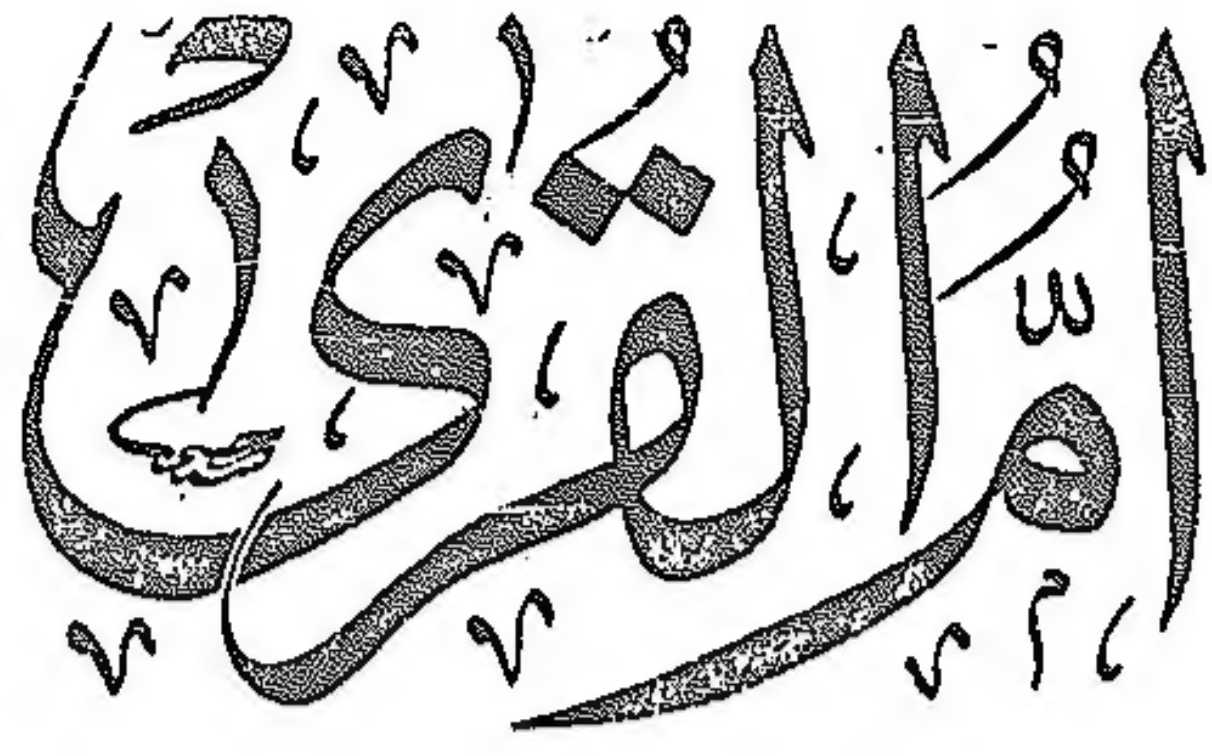 أُمُّ القُرَى